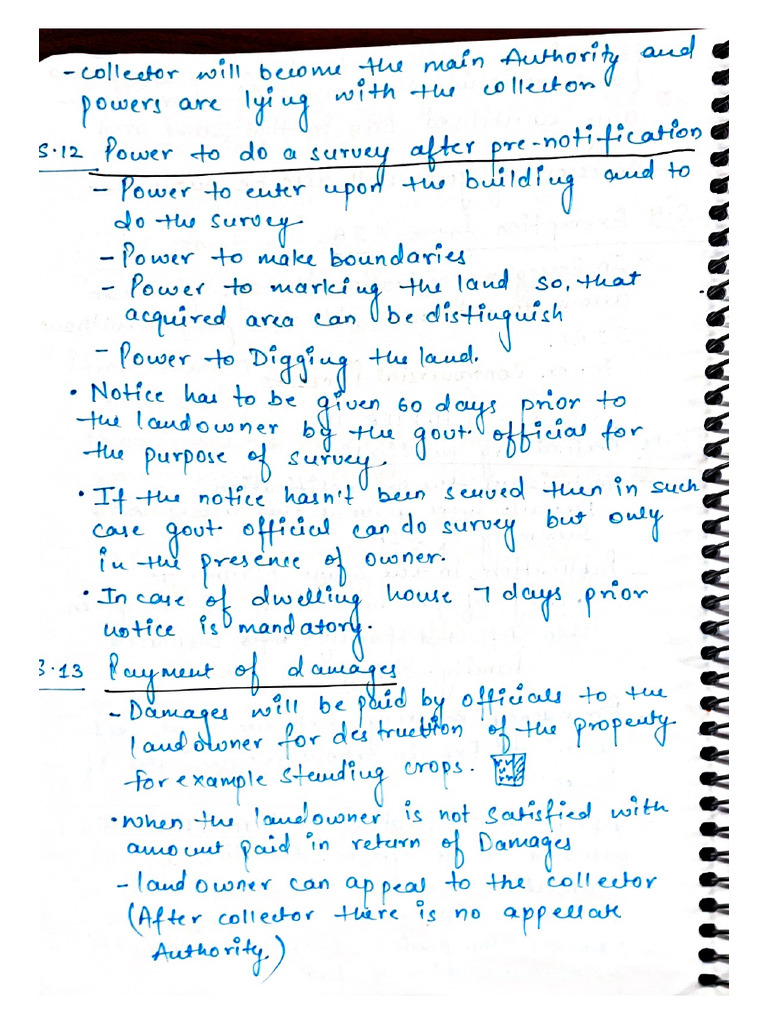 - Collector will become the main Authority and
powers are lying with the collector
S.12 Power to do a survey after pre-notification
- Power to enter upon the building and to
do the survey
- Power to make boundaries
- Power to marking the land so, that
acquired area can be distinguish
- Power to Digging the land.
• Notice has to be given 60 days prior to
the landowner by the govt. official for
the purpose of survey.
• If the notice hasn't been served then in such
case govt. official can do survey but only
in the presence of owner.
• In case of dwelling house 7 days prior
notice is mandatory.
S.13 Payment of damages
- Damages will be paid by officials to the
landowner for destruction of the property
for example standing crops.
• When the landowner is not satisfied with
amount paid in return of Damages
- land owner can appeal to the collector
(After collector there is no appellate
Authority.)